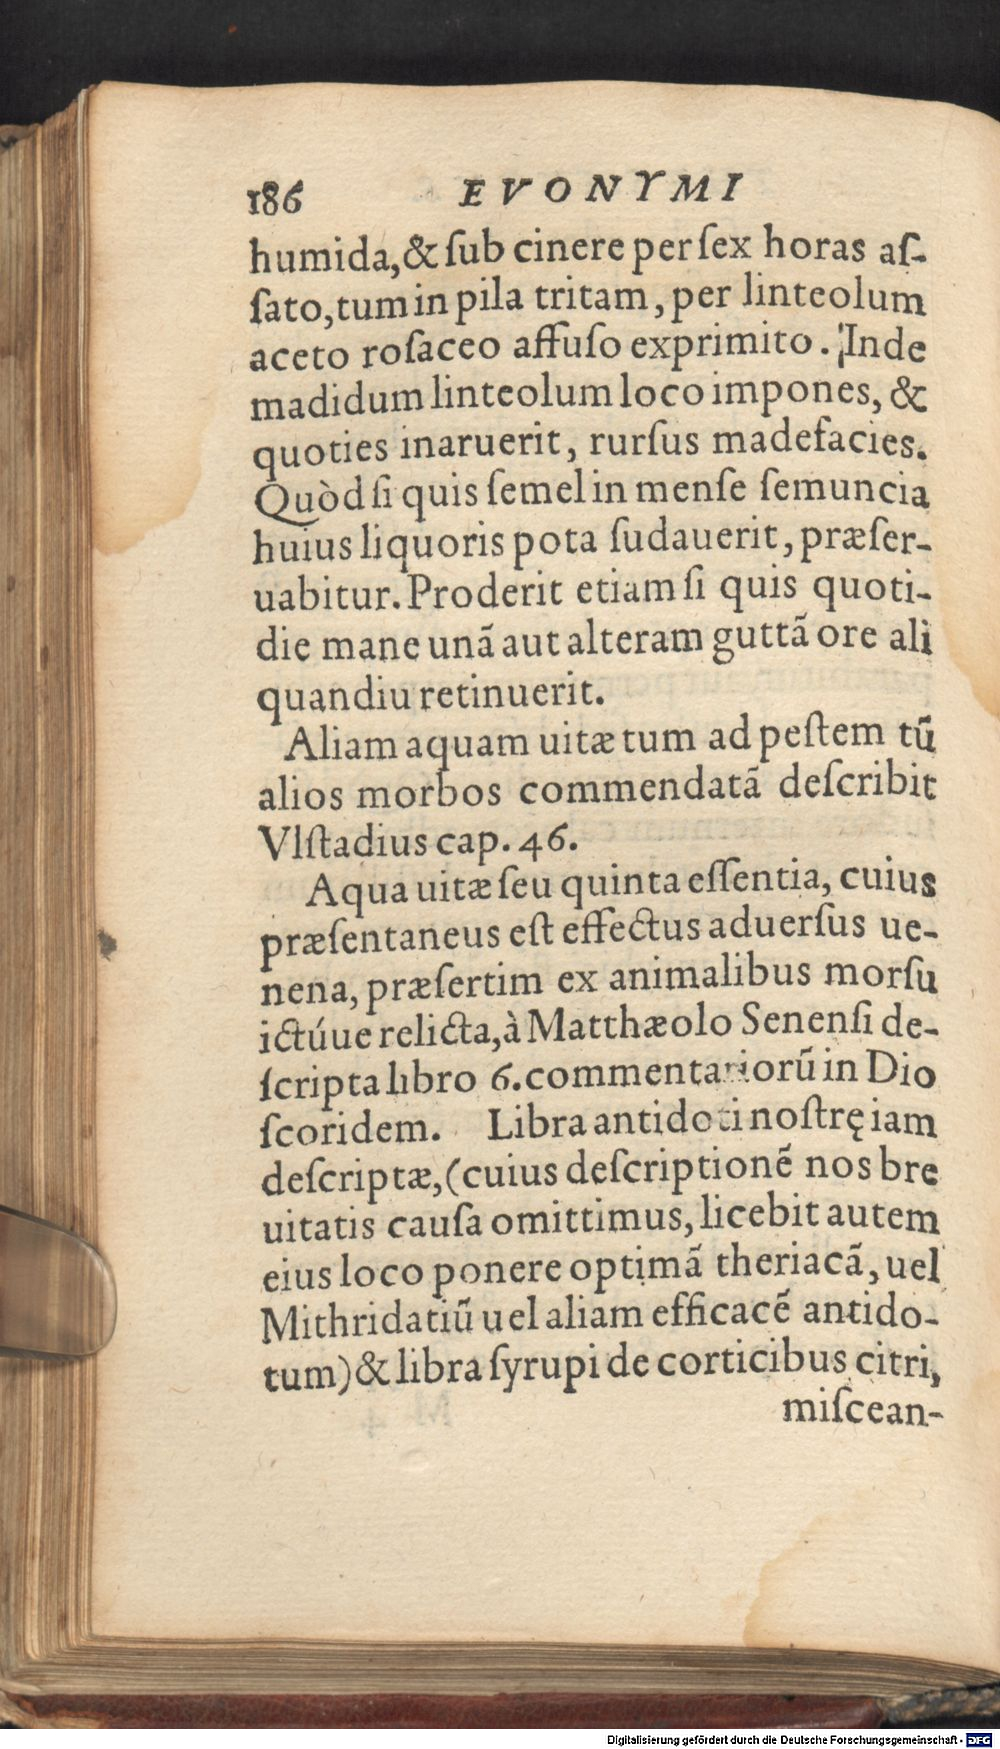 186 EVONYMI
humida,& ſub cinere per ſex horas aſ-
ſato,tum in pila tritam, per linteolum
aceto roſaceo affuſo exprimito. Inde
madidum linteolum loco impones, &
quoties inaruerit, rurſus madefacies.
Quòd ſi quis ſemel in menſe ſemuncia
huius liquoris pota ſudauerit, præſer-
uabitur. Proderit etiam ſi quis quoti-
die mane unã aut alteram guttã ore ali
quandiu retinuerit.
Aliam aquam uitæ tum ad peſtem tũ
alios morbos commendatã deſcribit
Vlſtadius cap. 46.
Aqua uitæ ſeu quinta eſſentia, cuius
præſentaneus eſt effectus aduerſus ue-
nena, præſertim ex animalibus morſu
ictúue relicta, à Matthæolo Senenſi de-
ſcripta libro 6. commentariorũ in Dio
ſcoridem. Libra antidoti noſtrę iam
deſcriptæ, (cuius deſcriptionẽ nos bre
uitatis cauſa omittimus, licebit autem
eius loco ponere optimã theriacã, uel
Mithridatiũ uel aliam efficacẽ antido-
tum) & libra ſyrupi de corticibus citri,
miſcean-
Digitalisierung gefördert durch die Deutsche Forschungsgemeinschaft - DFG